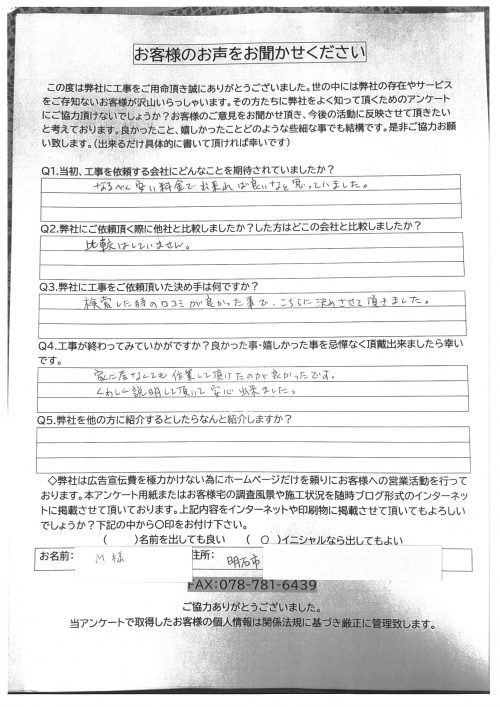 お客様のお声をお聞かせください
この度は弊社に工事をご用命頂き誠にありがとうございました。世の中には弊社の存在やサービス
をご存知ないお客様が沢山いらっしゃいます。その方たちに弊社をよく知って頂くためのアンケート
にご協力頂けないでしょうか？お客様のご意見をお聞かせ頂き、今後の活動に反映させて頂きたい
と考えております。良かったこと、嬉しかったことどのような些細な事でも結構です。是非ご協力お願
い致します。（出来るだけ具体的に書いて頂ければ幸いです）
Q1.当初、工事を依頼する会社にどんなことを期待されていましたか？
なるべく安い料金で出来れば良いなと思っていました。
Q2.弊社にご依頼頂く際に他社と比較しましたか？した方はどこの会社と比較しましたか？
比較はしていません。
Q3.弊社に工事をご依頼頂いた決め手は何ですか？
検索した時の口コミが良かった事で、こちらに決めさせて頂きました。
Q4.工事が終わってみていかがですか？良かった事・嬉しかった事を忌憚なく頂戴出来ましたら幸い
です。
家に居なくても作業して頂けたのが良かったです。
くわしく説明して頂いて安心出来ました。
Q5.弊社を他の方に紹介するとしたらなんと紹介しますか？
◇弊社は広告宣伝費を極力かけない為にホームページだけを頼りにお客様への営業活動を行って
おります。本アンケート用紙またはお客様宅の調査風景や施工状況を随時ブログ形式のインターネッ
トに掲載させて頂いております。上記内容をインターネットや印刷物に掲載させて頂いてもよろしい
でしょうか？下記の中から〇印をお付け下さい。
（　　）名前を出しても良い　（　○　）イニシャルなら出してもよい
お名前： M 様 住所： 明石市
FAX：078-781-6439
ご協力ありがとうございました。
当アンケートで取得したお客様の個人情報は関係法規に基づき厳正に管理致します。